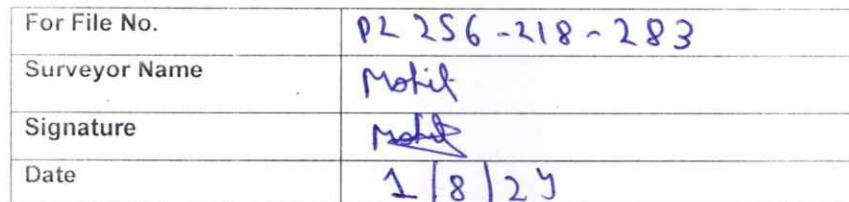 For File No. PL 256-218-283
Surveyor Name Mohit
Signature Mohit
Date 1/8/24